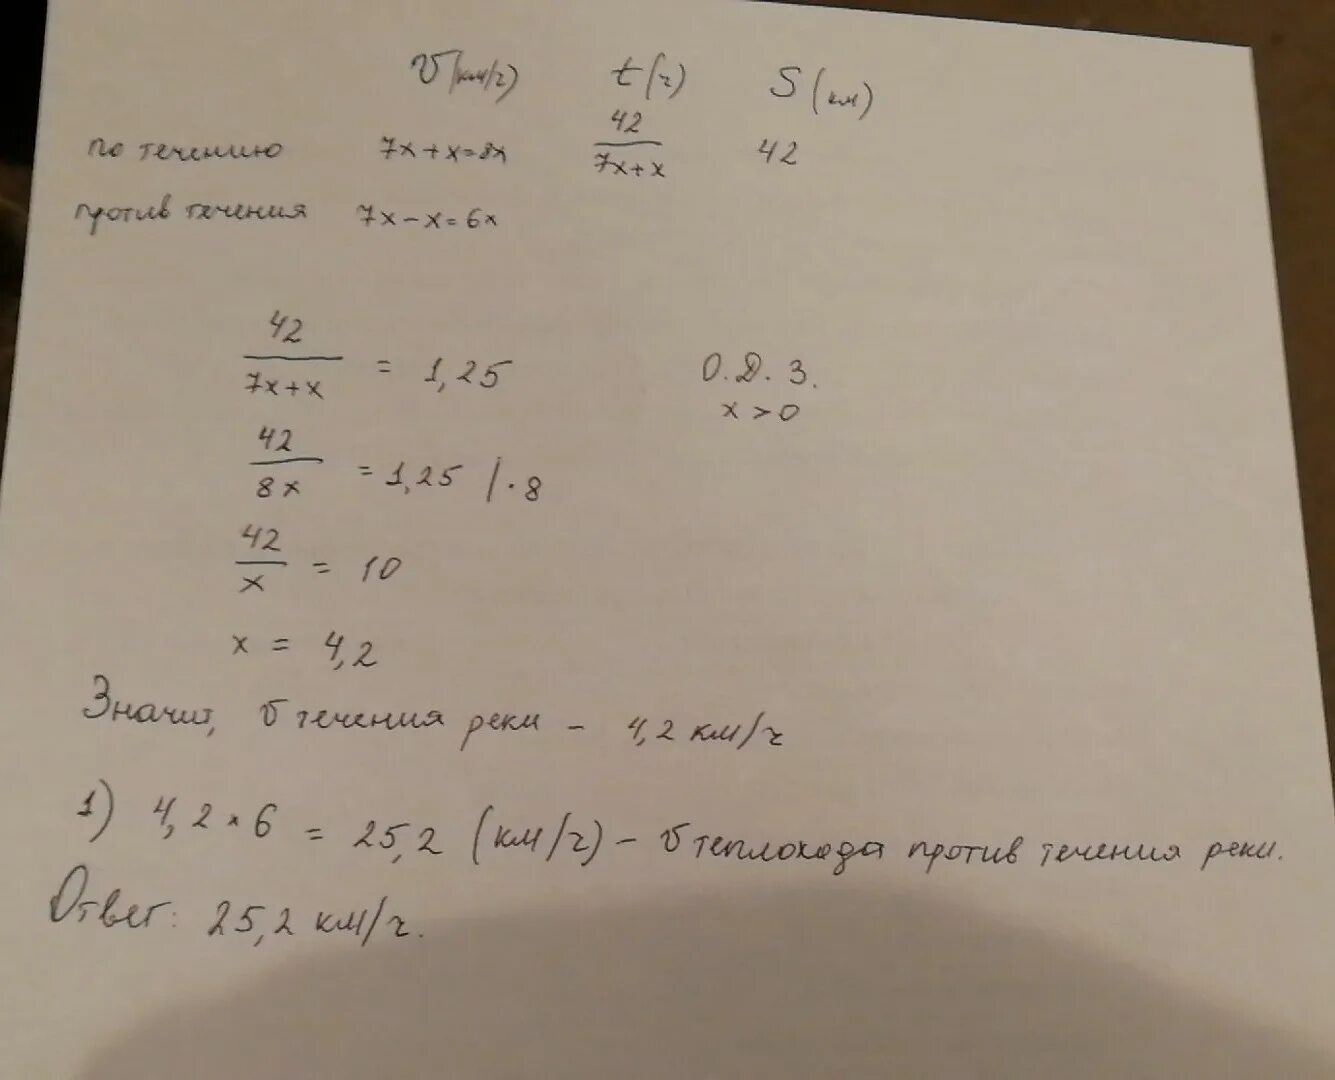 v (км/ч) t (ч) S (км)
по течению 7x+x=8x 42/(7x+x) 42
против течения 7x-x=6x
42/(7x+x) = 1,25 О.Д.З.
x>0
42/(8x) = 1,25 | · 8
42/x = 10
x = 4,2
Значит, v течения реки - 4,2 км/ч
1) 4,2 * 6 = 25,2 (км/ч) - v теплохода против течения реки.
Ответ: 25,2 км/ч.